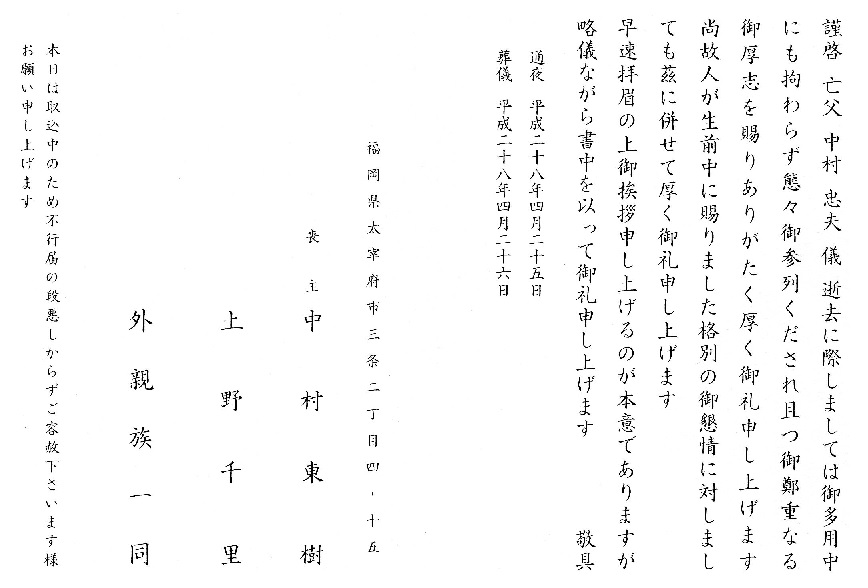 謹啓 亡父 中村 忠夫 儀 逝去に際しましては御多用中
にも拘わらず態々御参列くだされ且つ御鄭重なる
御厚志を賜りありがたく厚く御礼申し上げます
尚故人が生前中に賜りました格別の御懇情に対しまし
ても茲に併せて厚く御礼申し上げます
早速拝眉の上御挨拶申し上げるのが本意でありますが
略儀ながら書中を以って御礼申し上げます 敬具
通夜 平成二十八年四月二十五日
葬儀 平成二十八年四月二十六日
福岡県太宰府市三条二丁目四-十五
喪主 中村東樹
上野千里
外親族一同
本日は取込中のため不行届の段悪しからずご容赦下さいます様
お願い申し上げます